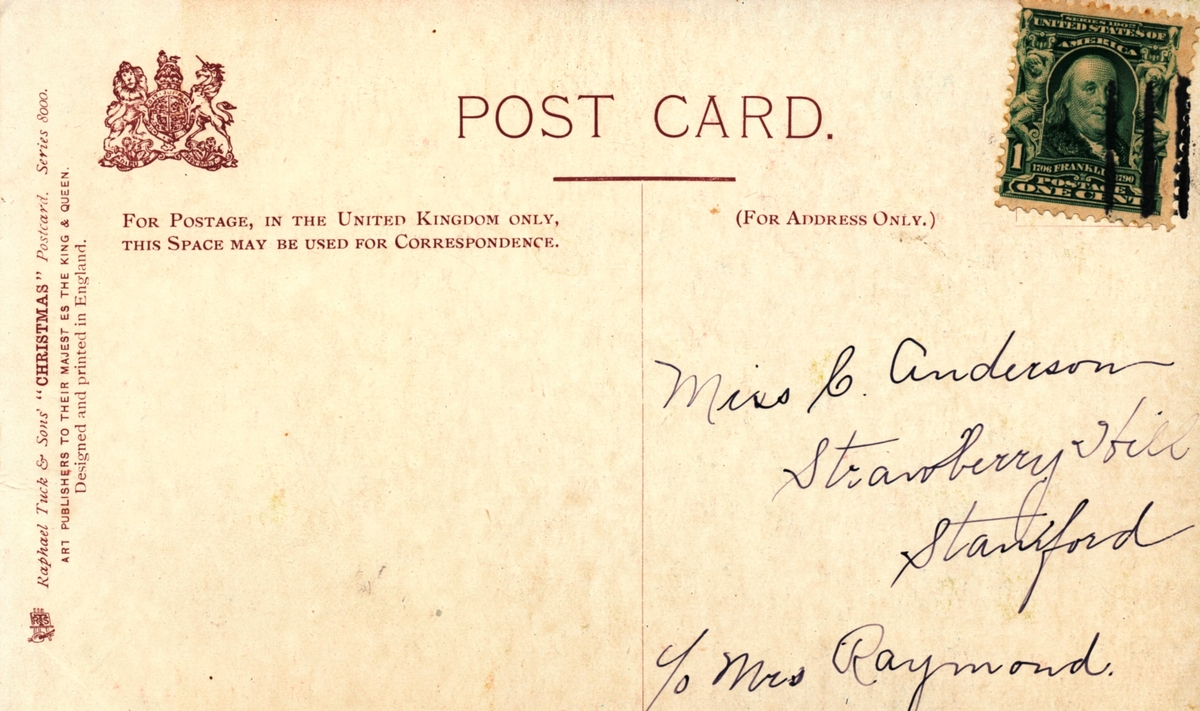 POST CARD.
FOR POSTAGE, IN THE UNITED KINGDOM ONLY,
THIS SPACE MAY BE USED FOR CORRESPONDENCE.
(FOR ADDRESS ONLY.)
Raphael Tuck & Sons' "CHRISTMAS" Postcard. Series 8000.
ART PUBLISHERS TO THEIR MAJEST ES THE KING & QUEEN.
Designed and printed in England.
SERIES 1902
UNITED STATES OF
AMERICA
1
1706 FRANKLIN 1790
POSTAGE
ONE CENT
Miss C. Anderson
Strawberry Hill
Stamford
c/o Mrs Raymond.